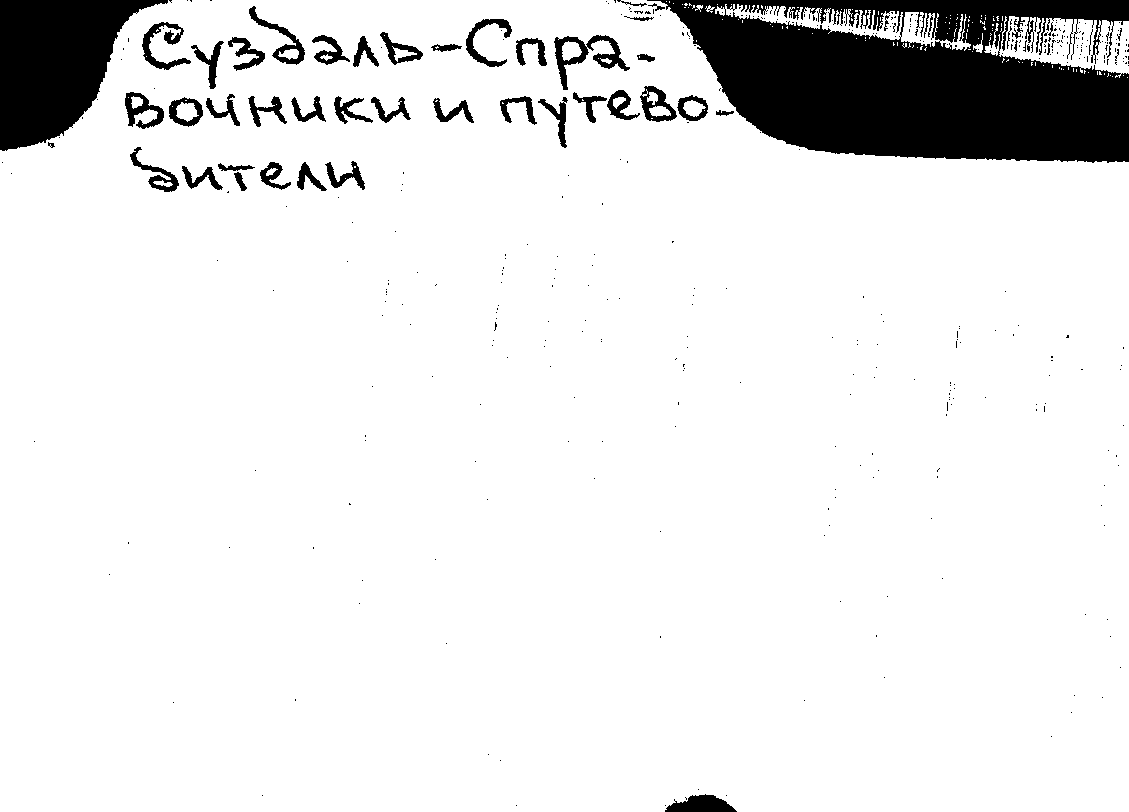 Суздаль-Спра-
вочники и путево-
дители